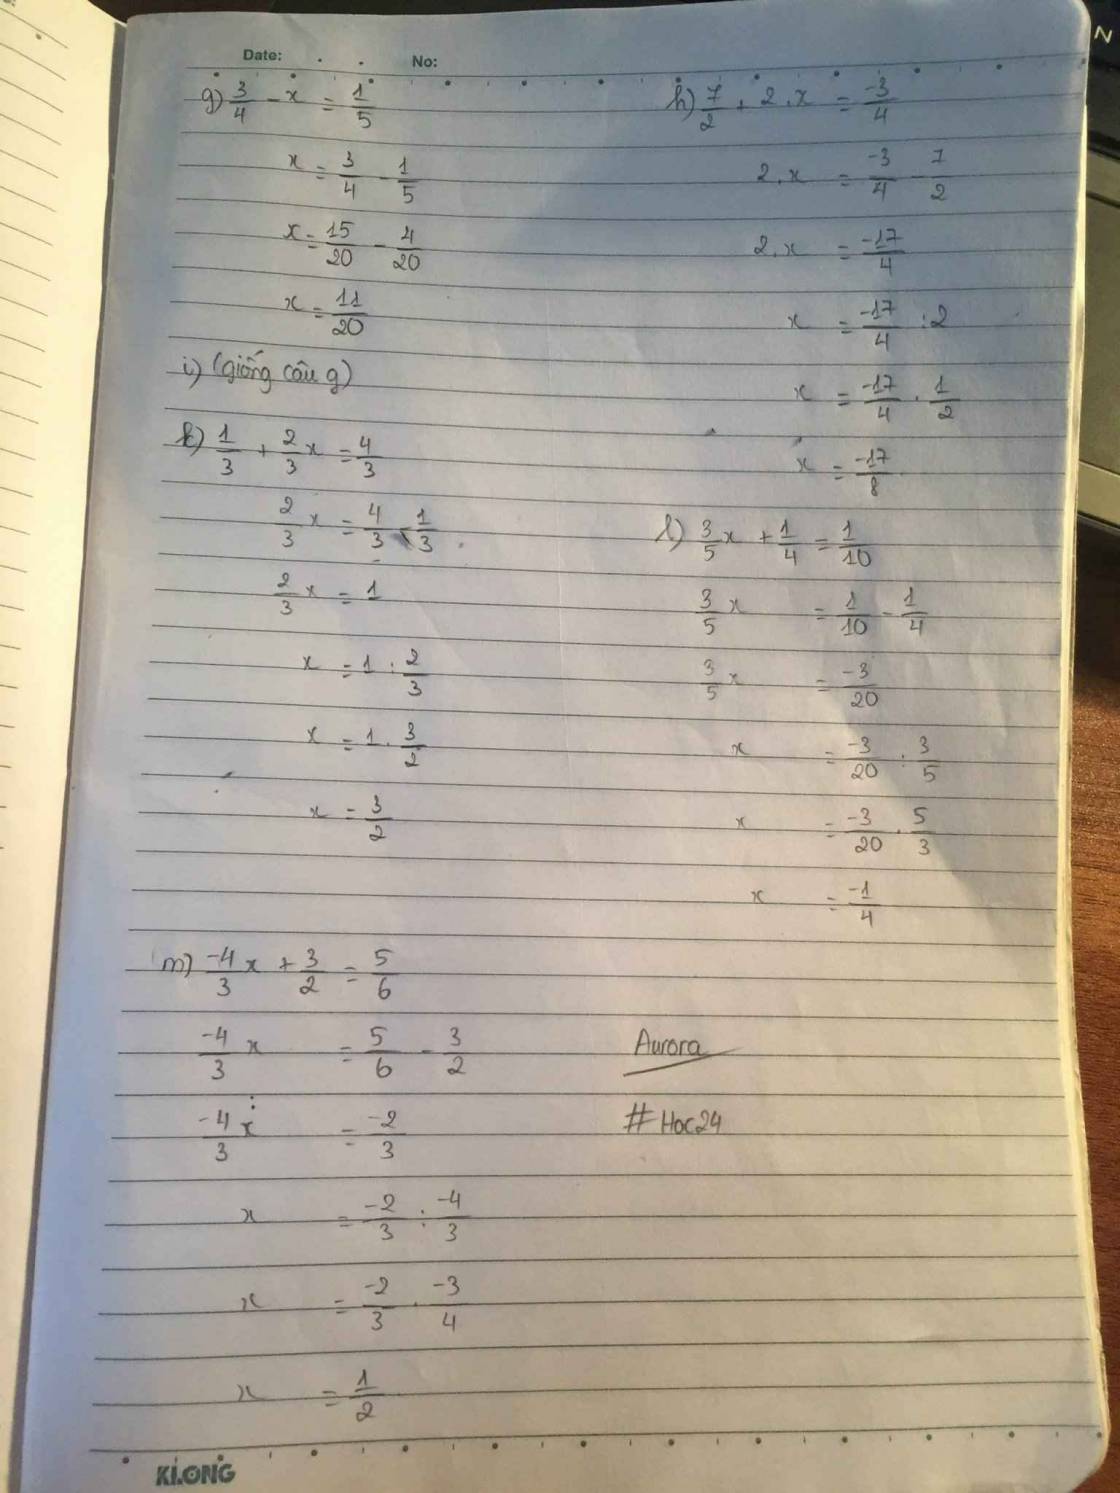 Date: No:
g) 3/4 - x = 1/5
x = 3/4 - 1/5
x = 15/20 - 4/20
x = 11/20
i) (giống câu g)
k) 1/3 + 2/3 x = 4/3
2/3 x = 4/3 - 1/3
2/3 x = 1
x = 1 : 2/3
x = 1 . 3/2
x = 3/2
h) 7/2 + 2 . x = -3/4
2 . x = -3/4 - 7/2
2 . x = -17/4
x = -17/4 : 2
x = -17/4 . 1/2
x = -17/8
l) 3/5 x + 1/4 = 1/10
3/5 x = 1/10 - 1/4
3/5 x = -3/20
x = -3/20 : 3/5
x = -3/20 . 5/3
x = -1/4
m) -4/3 x + 3/2 = 5/6
-4/3 x = 5/6 - 3/2
-4/3 x = -2/3
x = -2/3 : -4/3
x = -2/3 . -3/4
x = 1/2
Aurora
# Hoc24
KLONG